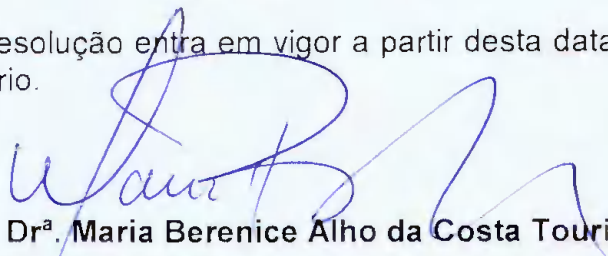 esolução entra em vigor a partir desta data
rio.
Maria B
Drª. Maria Berenice Alho da Costa Touri